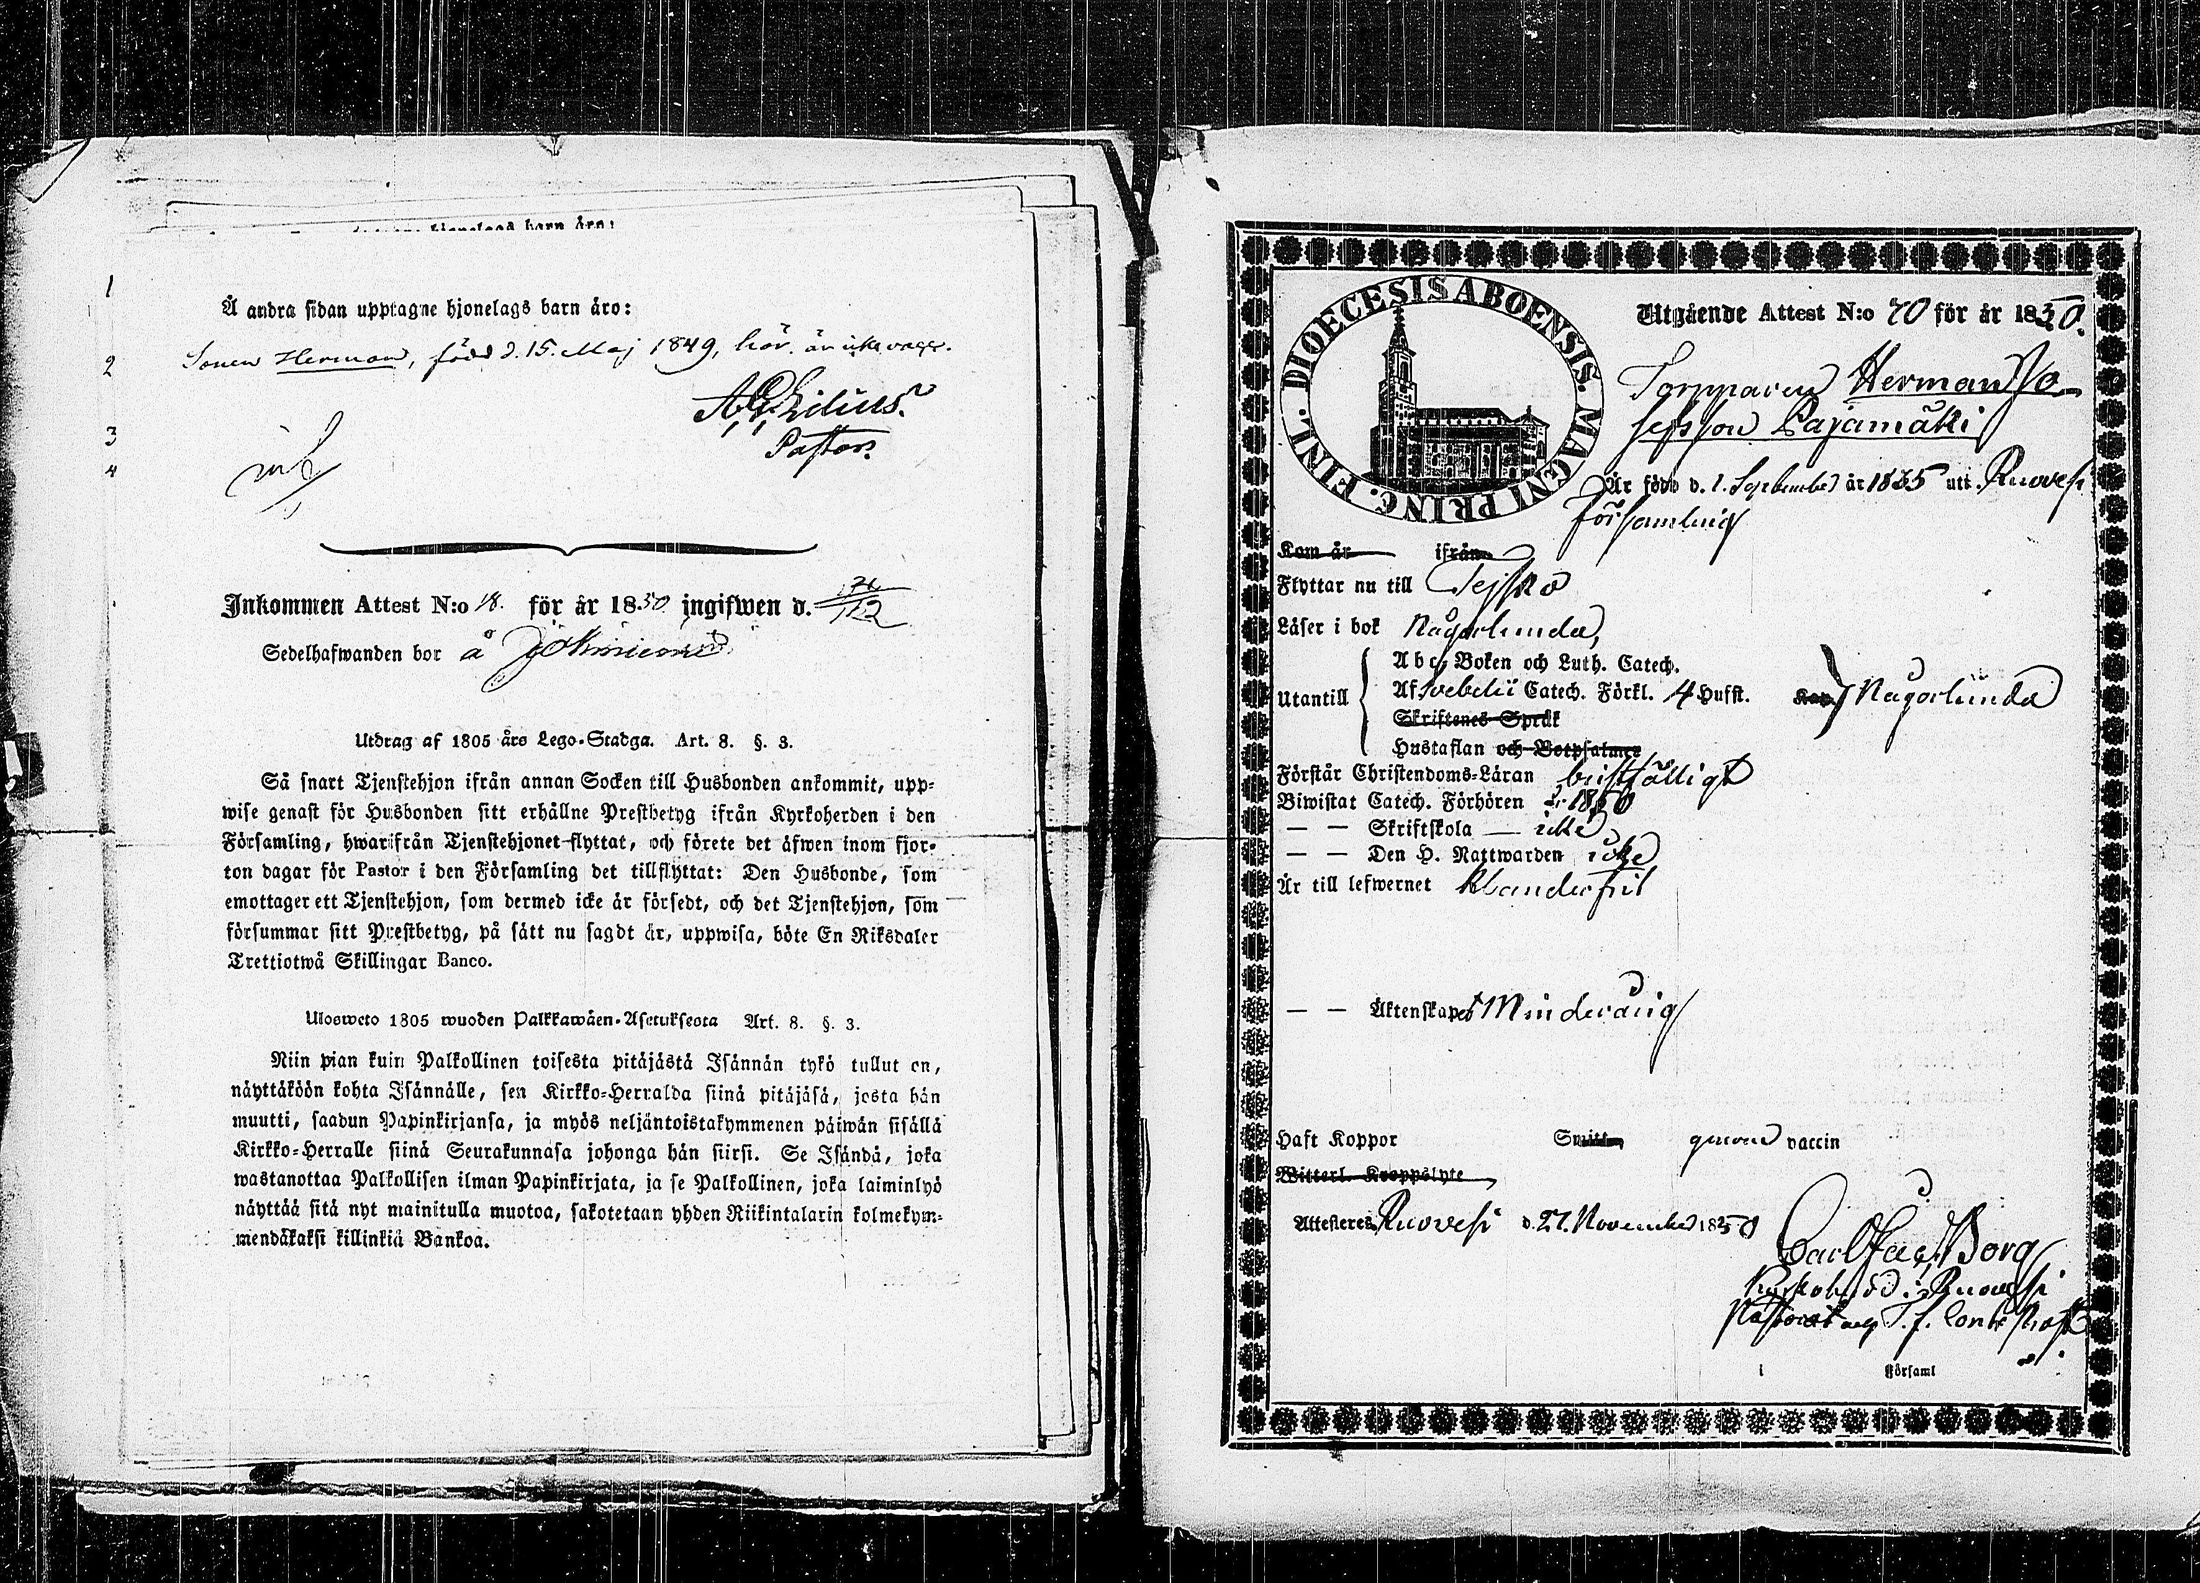 Å andra sidan upptagne hjonelags barn äro:
Sonen Herman, född d. 15. Maj 1849, här. är icke vacc.
Pastor.
Inkommen Attest N:o 18. för år 1850 ingifwen d. /12
Sedelhafwanden bor å
Utdrag af 1805 års Lego-Stadga. Art. 8. §. 3.
Så snart Tjenstehjon ifrån annan Socken till Husbonden ankommit, upp-
wise genast för Husbonden sitt erhållne Prestbetyg ifrån Kyrkoherden i den
Församling, hwarifrån Tjenstehjonet flyttat, och förete det äfwen inom fjor-
ton dagar för Pastor i den Församling det tillflyttat: Den Husbonde, som
emottager ett Tjenstehjon, som dermed icke är försedt, och det Tjenstehjon, som
försummar sitt Prestbetyg, på sätt nu sagdt är, uppwisa, böte En Riksdaler
Trettiotwå Skillingar Banco.
Ulosweto 1805 wuoden Palkkawäen-Asetuksesta Art. 8. §. 3.
Niin pian kuin Palkollinen toisesta pitäjästä Isännän tykö tullut on,
näyttäköön kohta Isännälle, sen Kirkko-Herralda siinä pitäjäsä, josta hän
muutti, saadun Papinkirjansa, ja myös neljäntoistakymmenen päiwän sisällä
Kirkko-Herralle siinä Seurakunnasa johonga hän siirsi. Se Isändä, joka
wastanottaa Palkollisen ilman Papinkirjata, ja se Palkollinen, joka laiminlyö
näyttää sitä nyt mainitulla muotoa, sakotetaan yhden Riikintalarin kolmekym-
mendäkaksi killinkiä Bankoa.
1
2
3
4
DIOECESIS ABOENSIS. MAGNI PRINC. FINL.
Utgående Attest N:o 70 för år 1850.
Torpparen Herman Jo-
sefsson Pajamäki
Är född d. 1. September år 1835 uti Ruovesi
församling
Kom år ifrån
Flyttar nu till Teisko
Läser i bok Någorlunda,
Utantill
Abc, Boken och Luth. Catech.
Af Svebelii Catech. Förkl. 4 Hufst. Kap. Någorlunda
Skriftenes Språk
Hustaflan och Botpsalmer
Förstår Christendoms-Läran bristfälligt
Biwistat Catech. Förhören år 1850
— — Skriftskola — icke
— — Den H. Nattwarden icke
Är till lefwernet klanderfri
— — Äktenskapet Minderårig
Haft Koppor Smitt genom vaccin
Witterl. Kroppslyte
Attesteres Ruovesi d. 27. November 1850
Carl Borg
Kyrkoherde i Ruovesi
i Församl